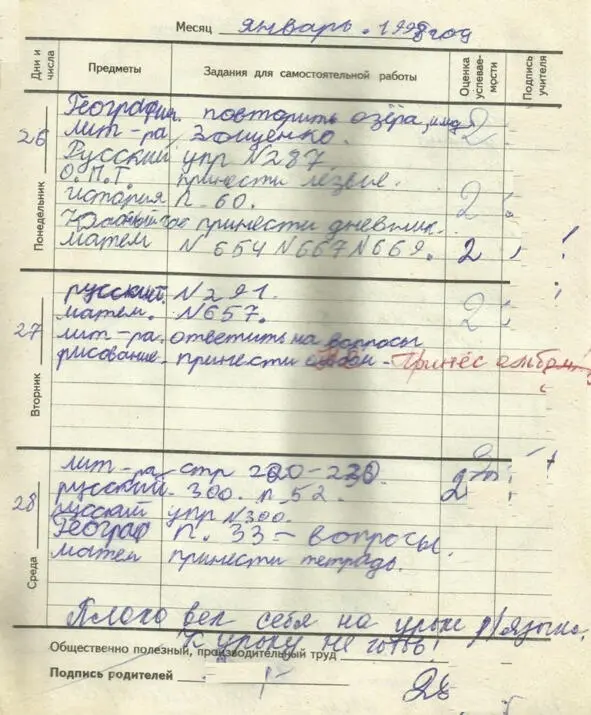 Месяц январь. 1998 год
Дни и числа Предметы Задания для самостоятельной работы Оценка успеваемости Подпись учителя
Понедельник 26
География. повторить озёра, 2
лит-ра Зощенко.
Русский упр N287
О.П.Т. принести лезвие.
история п. 60. 2
принести дневник.
матем N 654 N667 N669. 2
Вторник 27
русский. N291. 2
матем. N657.
лит-ра. ответить на вопросы
рисование. принести альбом - Принёс альбом
Среда 28
лит-ра стр 220-230.
русский. 300. п 52. 2
русский упр N300.
Географ п. 33 - вопросы.
матем принести тетрадь.
Плохо вел себя на уроке р/языка.
К уроку не готов!
Общественно полезный, производительный труд
Подпись родителей